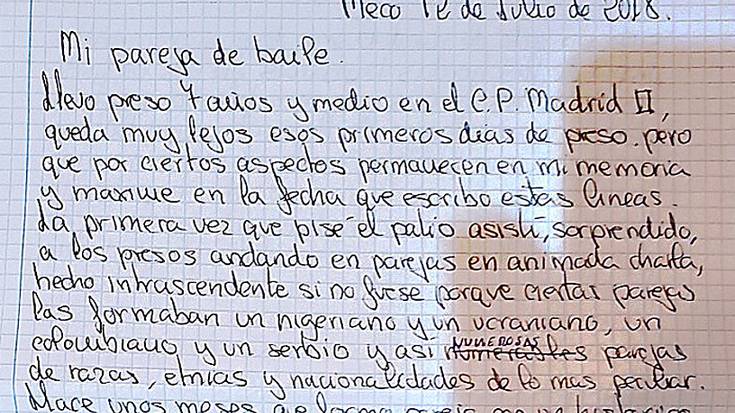 Meco 12 de Julio de 2018.
Mi pareja de baile.
Llevo preso 7 años y medio en el C.P. Madrid II,
queda muy lejos esos primeros dias de preso. pero
que por ciertos aspectos permanecen en mi memoria
y maxime en la fecha que escribo estas lineas.
La primera vez que pise el patio asisti, sorprendido,
a los presos andando en parejas en animada charla,
hecho intrascendente si no fuese porque ciertas parejas
las formaban un nigeriano y un ucraniano, un
colombiano y un serbio y asi numerosas parejas
de razas, etnias y nacionalidades de lo mas peculiar.
Hace unos meses que formo pareja